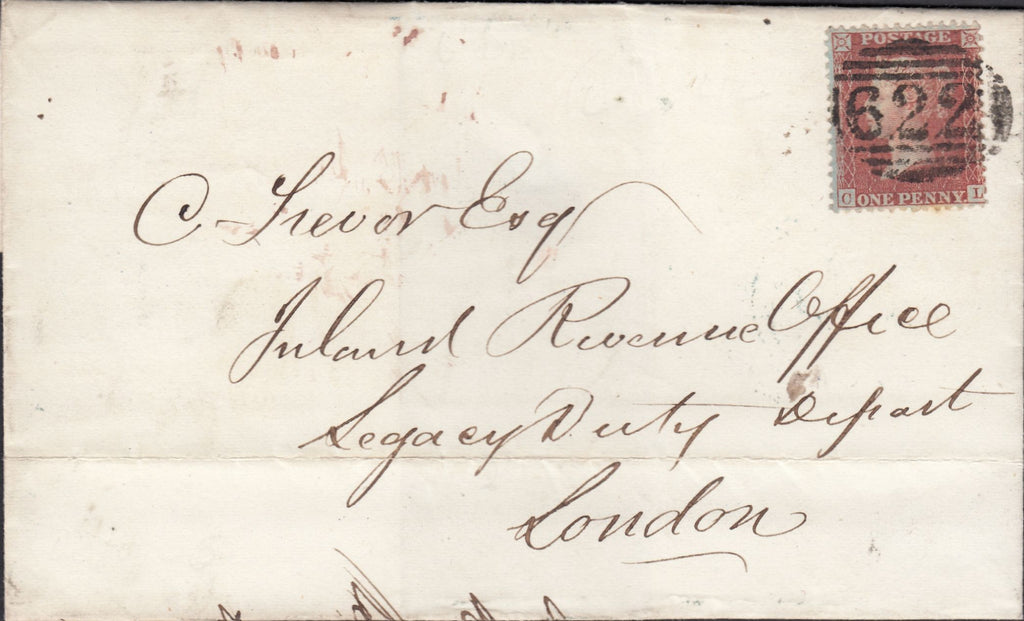 POSTAGE
622
C L
ONE PENNY
C Trevor Esq
Inland Revenue Office
Legacy Duty Depart
London